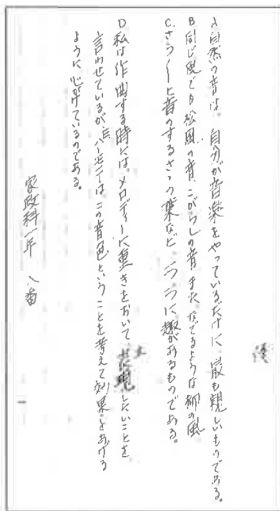 A自然の音は、自分が音楽をやっているだけに、最も親しいものである。
B同じ風でも松風の音、こがらしの音、またなでるような柳の風
C.さらさらと音のするささの葉など、一つ一つに趣があるものである。
D私は作曲する時にはメロディーに重きをおいて したいことを
言わせているが、ハーモニーはこの音色ということを考えて効果をあげる
ように心掛けているのである。
家政科一年 八番